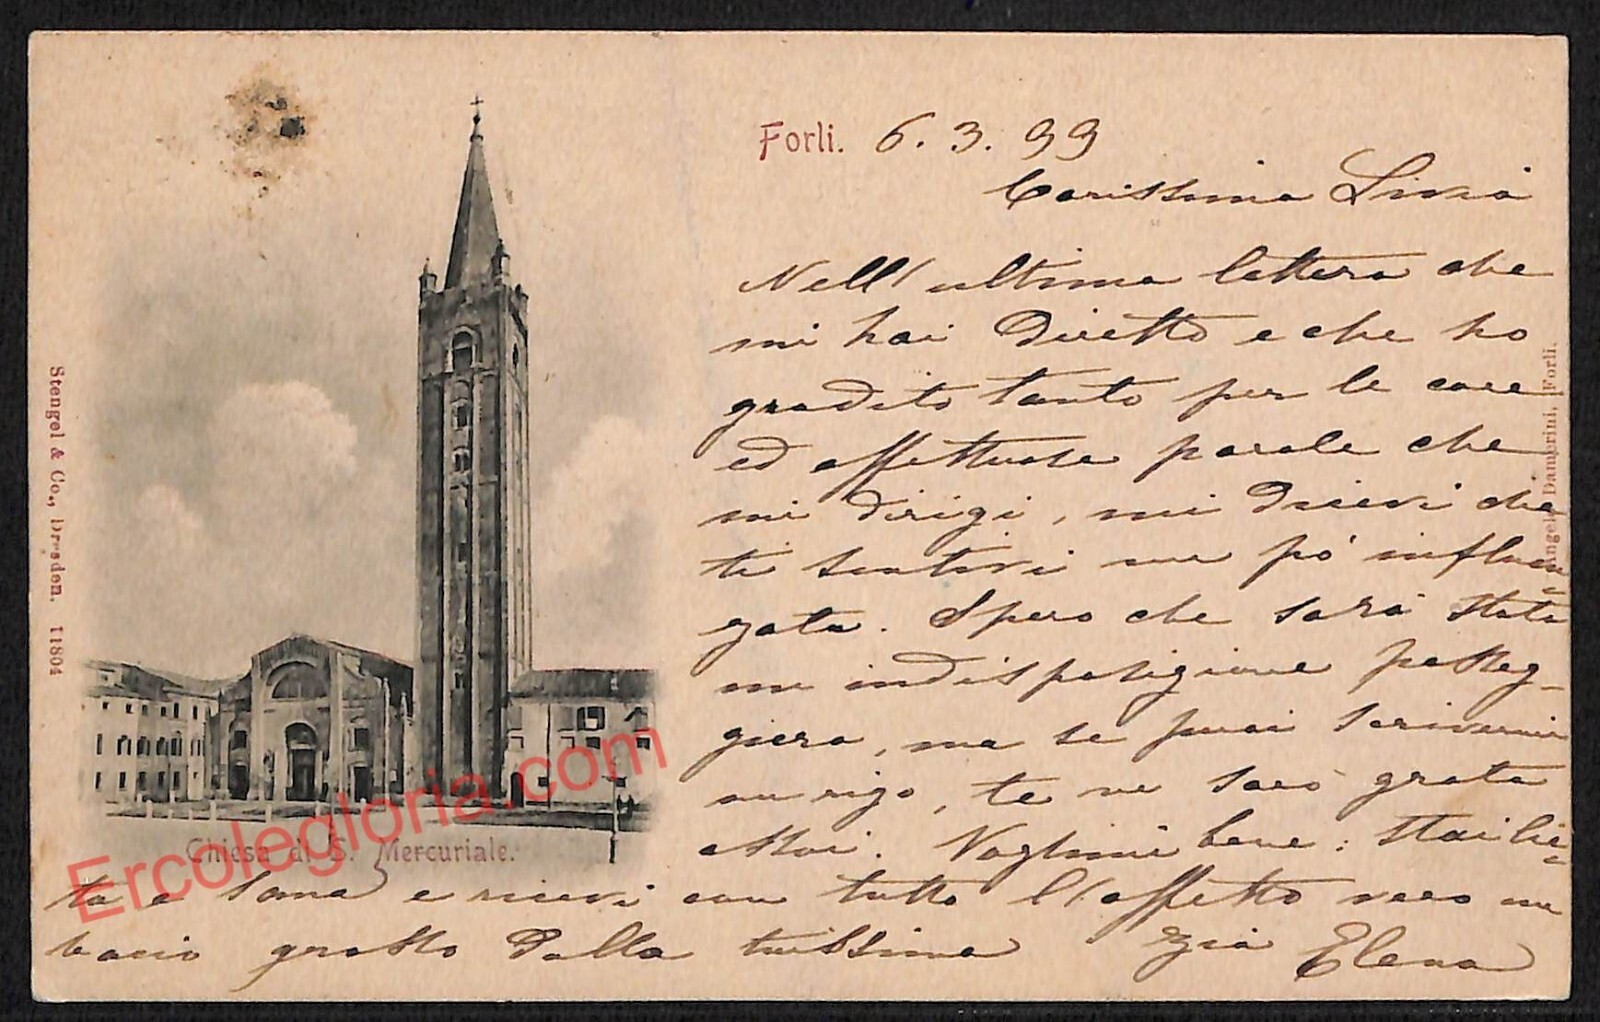 Forli. 6. 3. 99
Carissima Livia
Nell'ultima lettera che
mi hai diretto e che ho
gradito tanto per le care
ed affettuose parole che
mi dirigi, mi dicevi che
ti sentivi un pò influen
zata. Spero che sarà stata
un indisposizione passeg-
giera, ma se puoi scrivermi
un rigo, te ne sarò grata
assai. Vogliimi bene: stai lie-
ta e sana e ricevi con tutto l'affetto vero un
bacio grosso dalla tuissima zia Elena
Chiesa di S. Mercuriale.
Stengel & Co., Dresden. 11804
Angelo Damerini, Forli.
Ercolegloria.com